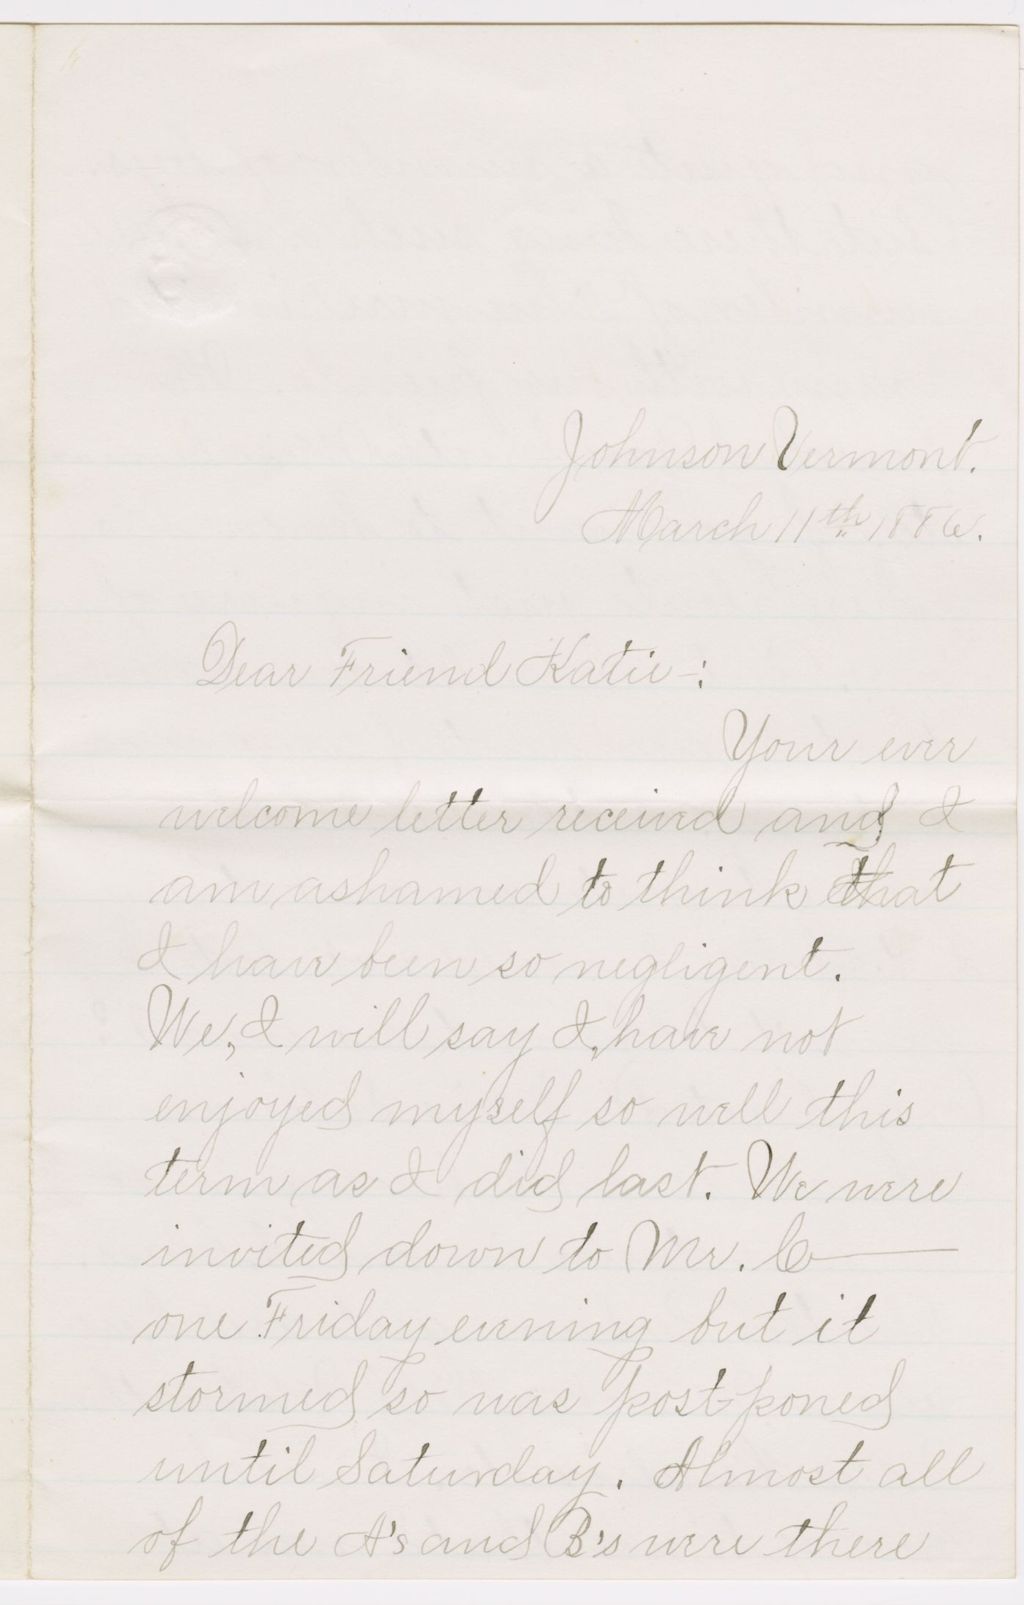 Johnson Vermont.
March 11th 1886.
Dear Friend Katie-:
Your ever
welcome letter received and I
am ashamed to think that
I have been so negligent.
We, I will say I, have not
enjoyed myself so well this
term as I did last. We were
invited down to Mr. C——
one Friday evening but it
stormed so was postponed
until Saturday. Almost all
of the A's and B's were there